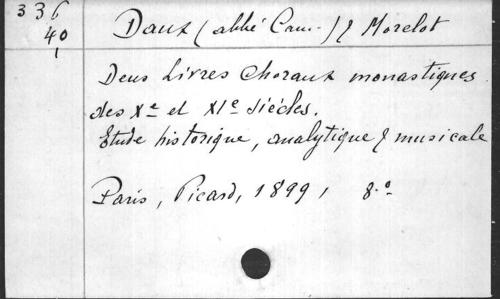 336
40
1
Daux (abbé Cam.) & Morelot
Deux Livres Choraux monastiques
des Xe et XIe siècles.
Etude historique, analytique & musicale
Paris, Picard, 1899, 8.o